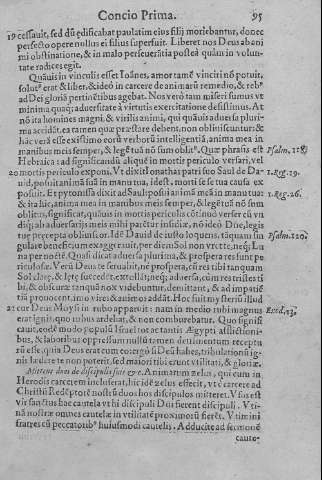 Concio Prima. 95
19 cessauit, sed dũ ędificabat paulatim eius filij moriebantur, donec
perfecto opere nullus ei filius superfuit. Liberet nos Deus ab ani
mi obstinatione, & in malo perseuerãtia posteà quàm in volun-
tate radices egit.
Quãuis in vinculis esset Ioãnes, amor tamẽ vinciri nõ potuit,
solutꝰ erat & liber, & ideò in carcere de animarũ remedio, & rebꝰ
ad Dei gloriã pertinẽtibus agebat. Nos verò tam miseri sumus vt
minima quaq; aduersitate à virtutis exercitatione desistimus. At
nõ ita homines magni, & virilis animi, qui quãuis aduersa pluri-
ma accidãt, ea tamen quæ præstare debent, non obliuiscuntur: &
hæc verà est illorũ verborũ intelligentiã, anima mea in
manibus meis semper, & legẽ tuã nõ sum oblitꝰ. Quæ phrasis est Psalm. 118.
Hebraica: ad significandũ aliquẽ in mortis periculo versari, vel
20 mortis periculo exponi. Vt dixit Ionathas patri suo Saul de Da- 1. Reg. 19.
uid, posuit animã suã in manu tua, idest, morti se tua causa ex
posuit. Et pytonissa dixit ad Saul: posui animã meã in manu tua: 1. Reg. 26.
& ita hic, anima mea in manibus meis semper, & legẽ tuã nõ sum
oblitus, significat, quãuis in mortis periculis cõtinuò verser cũ vn
diq; ab aduersarijs meis mihi parẽtur insidiæ, nõ ideò Dñe, legis
tuę pręcepta obliuiscor. Idẽ Dauid de iusto loquens, tãquam sin Psalm. 120.
gulare beneficium exaggerauit, per diem Sol non vret te, neq; Lu
na per noctẽ. Quasi dicat aduersa plurima, & prospera res sunt pe
riculosæ. Verũ Deus te seruabit, ne prospera, cũ res tibi tanquam
Sol claręs, & lętę succedũt extollãt, neq; aduersa, cum res tristes ti
bi, & obscuræ tanquã nox videbuntur, demittant, & ad impatiẽ
tiã prouocent, imò vires & animos addãt. Hoc fuit mysteriũ illud
21 cur Deus Moysi in rubo apparuit: nam in medio rubi magnus Exod. 3.
erat ignis, quo rubus ardebat, & non comburebatur. Quo signifi
cauit, eodẽ modo populũ Israel tot ac tantis Ægypti afflictioni-
bus, & laboribus oppressum nullũ tamen detrimentum receptu
rũ esse, quia Deus erat cum eo: ergò si Deũ habes, tribulationũ ig-
nis lædere te non poterit, sed maiori tibi erunt vtilitati, & gloriæ.
Mittens duos de discipulis suis &c. Animarum zelus, qui cum in
Herodis carcerem incluserat, hic idẽ zelus effecit, vt è carcere ad
Christũ Redẽptorẽ nostrũ duos hos discipulos mitteret. Visus est
vir sanctus hac cautela vti discipuli Dñi fierent discipuli. Vti-
nã nostræ omnes cautelæ in vtilitatẽ proximorũ fierẽt. Vt mini
fratres cũ peccatoribꝰ huiusmodi cautelis. Adducite ad sermonẽ
cauto-